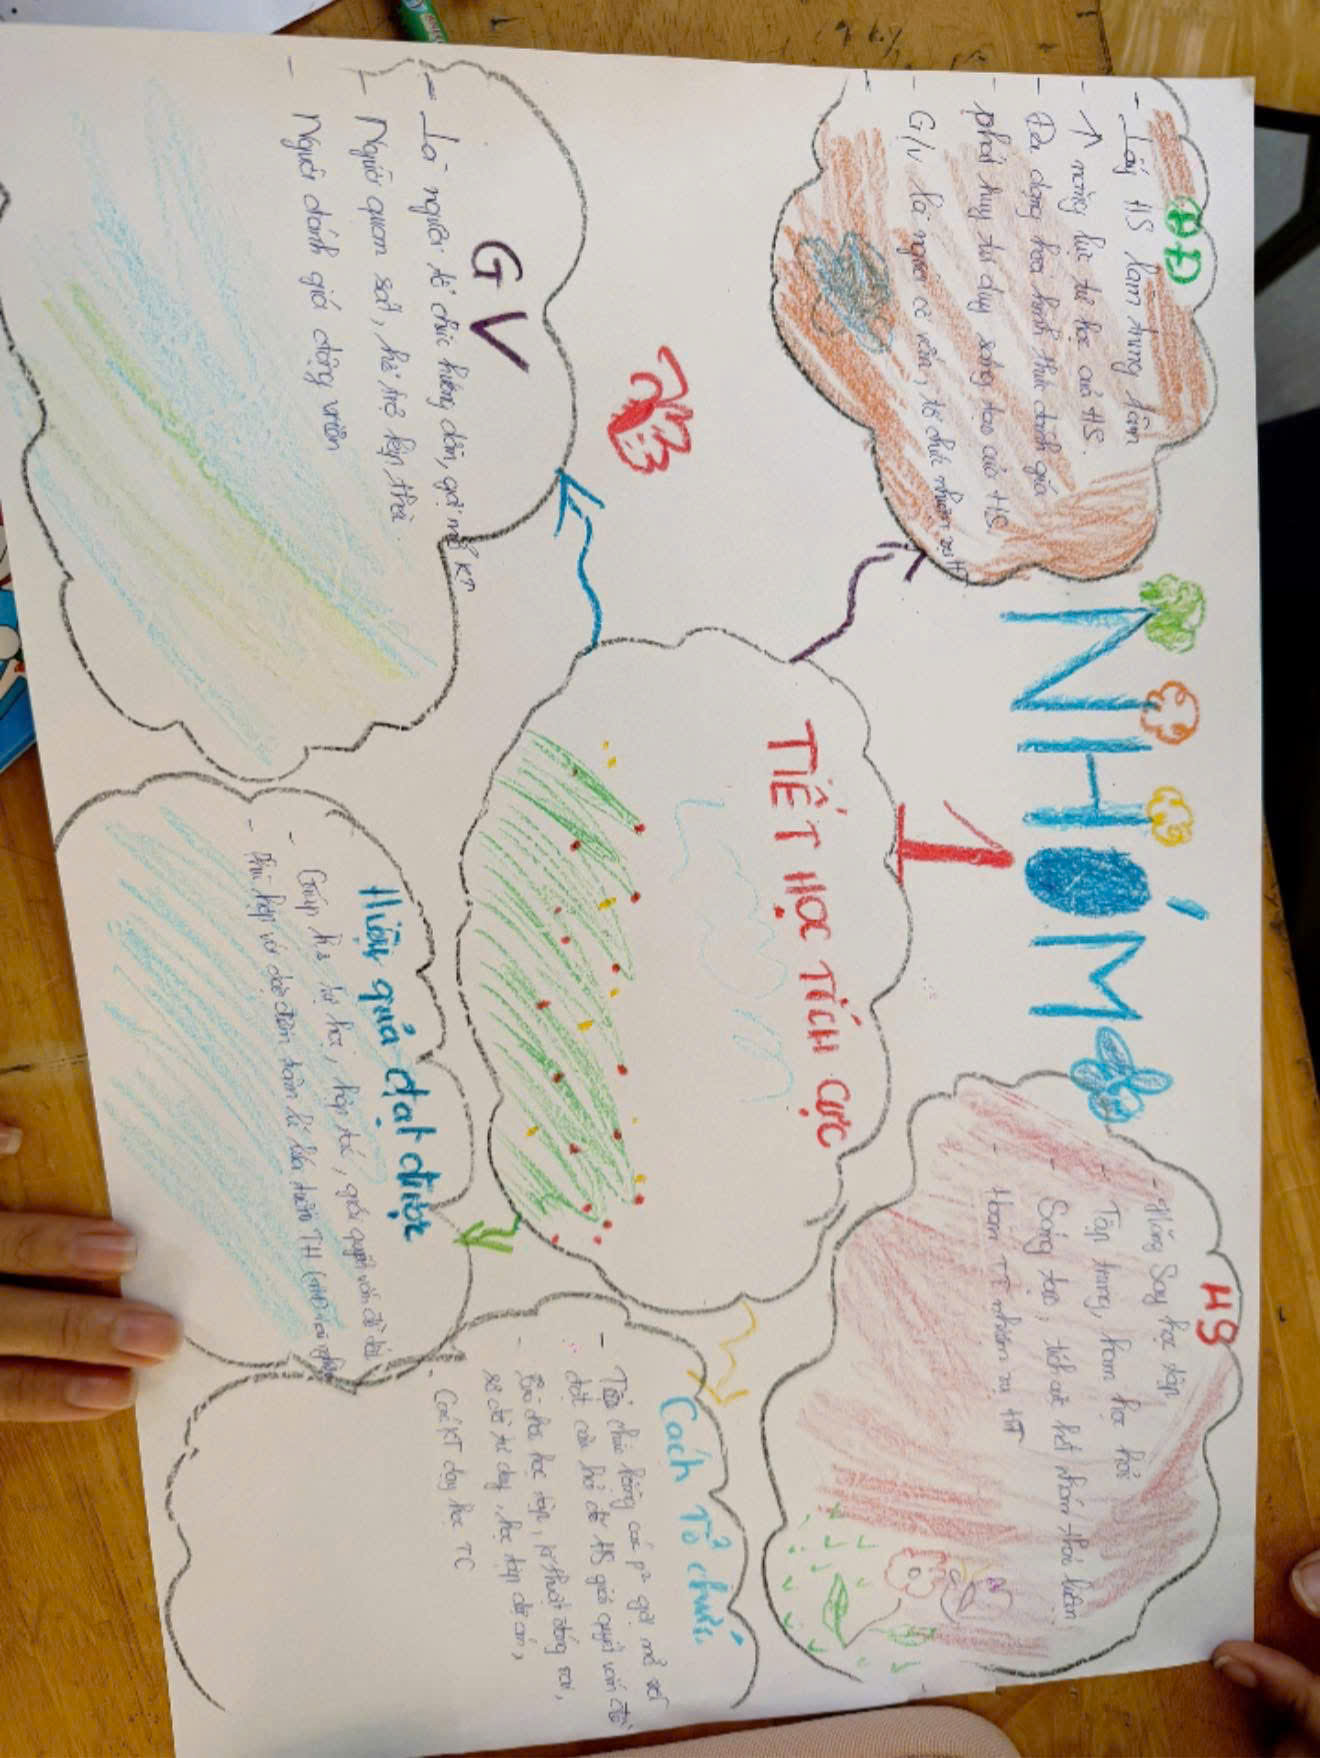 NHÓM 1
TIẾT HỌC TÍCH CỰC
ĐĐ
- Lấy HS làm trung tâm
- ↑ năng lực tự học của HS.
- Đa dạng hoá hình thức đánh giá
- phát huy tư duy sáng tạo của HS
- G/v là người cố vấn, tổ chức nhiệm vụ HT
HS
- Hăng say học tập
- Tập trung, ham học hỏi
- Sáng tạo, tích cực hđ nhóm thảo luận
- Hoàn TT nhiệm vụ HT
GV
- Là người tổ chức hướng dẫn, gợi mở KT
- Người quan sát, hỗ trợ kịp thời.
- Người đánh giá động viên
Hiệu quả đạt được
- Giúp hs tự học, hợp tác, giải quyết vấn đề tốt
- Phù hợp với đặc điểm tâm lí lứa tuổi TH
Cách Tổ chức
- Tổ chức bằng các p² gợi mở vđ
đặt câu hỏi để HS giải quyết vấn đề
- Trò chơi học tập, kĩ thuật đóng vai,
sơ đồ tư duy, học tập dự án,
- Các KT dạy học TC